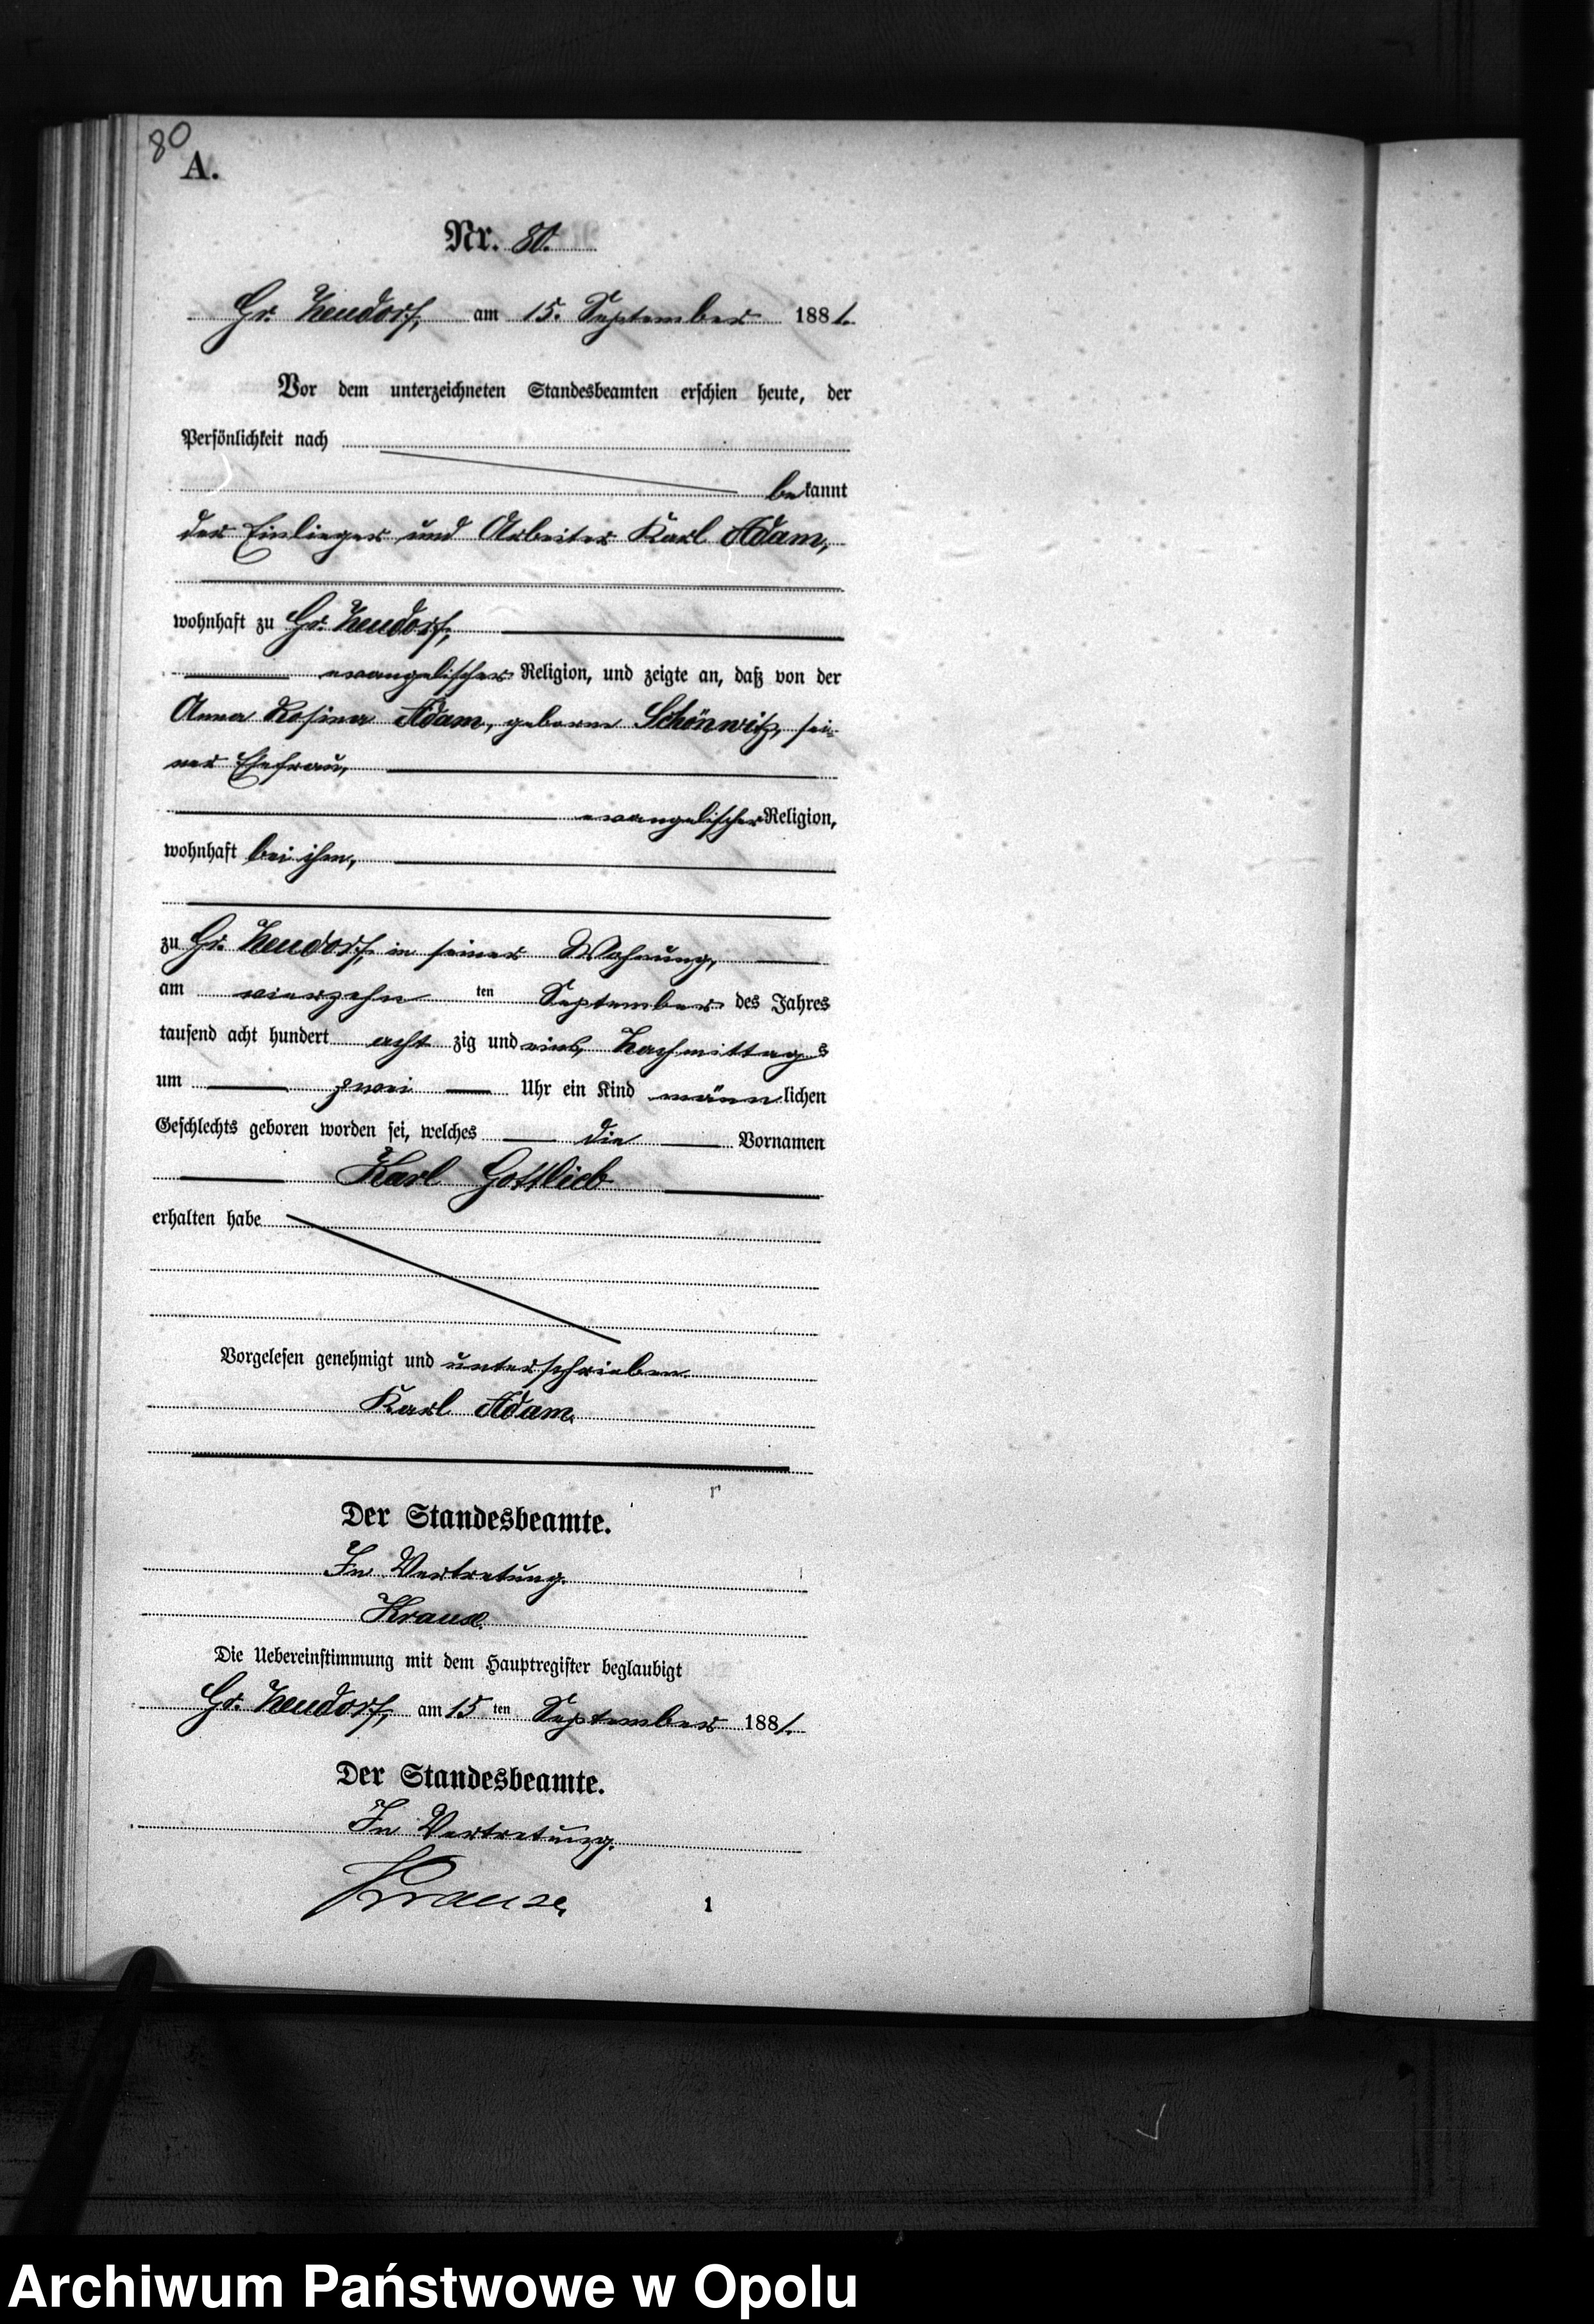 80
A.
Nr. 80.
Gr. Neudorf, am 15. September 1881.
Vor dem unterzeichneten Standesbeamten erschien heute, der
Persönlichkeit nach
bekannt
der Einlieger und Arbeiter Karl Adam,
wohnhaft zu Gr. Neudorf,
evangelischer Religion, und zeigte an, daß von der
Anna Rosina Adam, geborne Schönwitz, sei-
ner Ehefrau,
evangelischer Religion,
wohnhaft bei ihm,
zu Gr. Neudorf, in seiner Wohnung,
am vierzehn ten September des Jahres
tausend acht hundert acht zig und eins, Nachmittags
um zwei Uhr ein Kind männlichen
Geschlechts geboren worden sei, welches die Vornamen
Karl Gottlieb
erhalten habe
Vorgelesen genehmigt und unterschrieben.
Karl Adam.
Der Standesbeamte.
In Vertretung.
Krause.
Die Uebereinstimmung mit dem Hauptregister beglaubigt
Gr. Neudorf, am 15 ten September 1881.
Der Standesbeamte.
In Vertretung.
Krause.
1
Archiwum Państwowe w Opolu